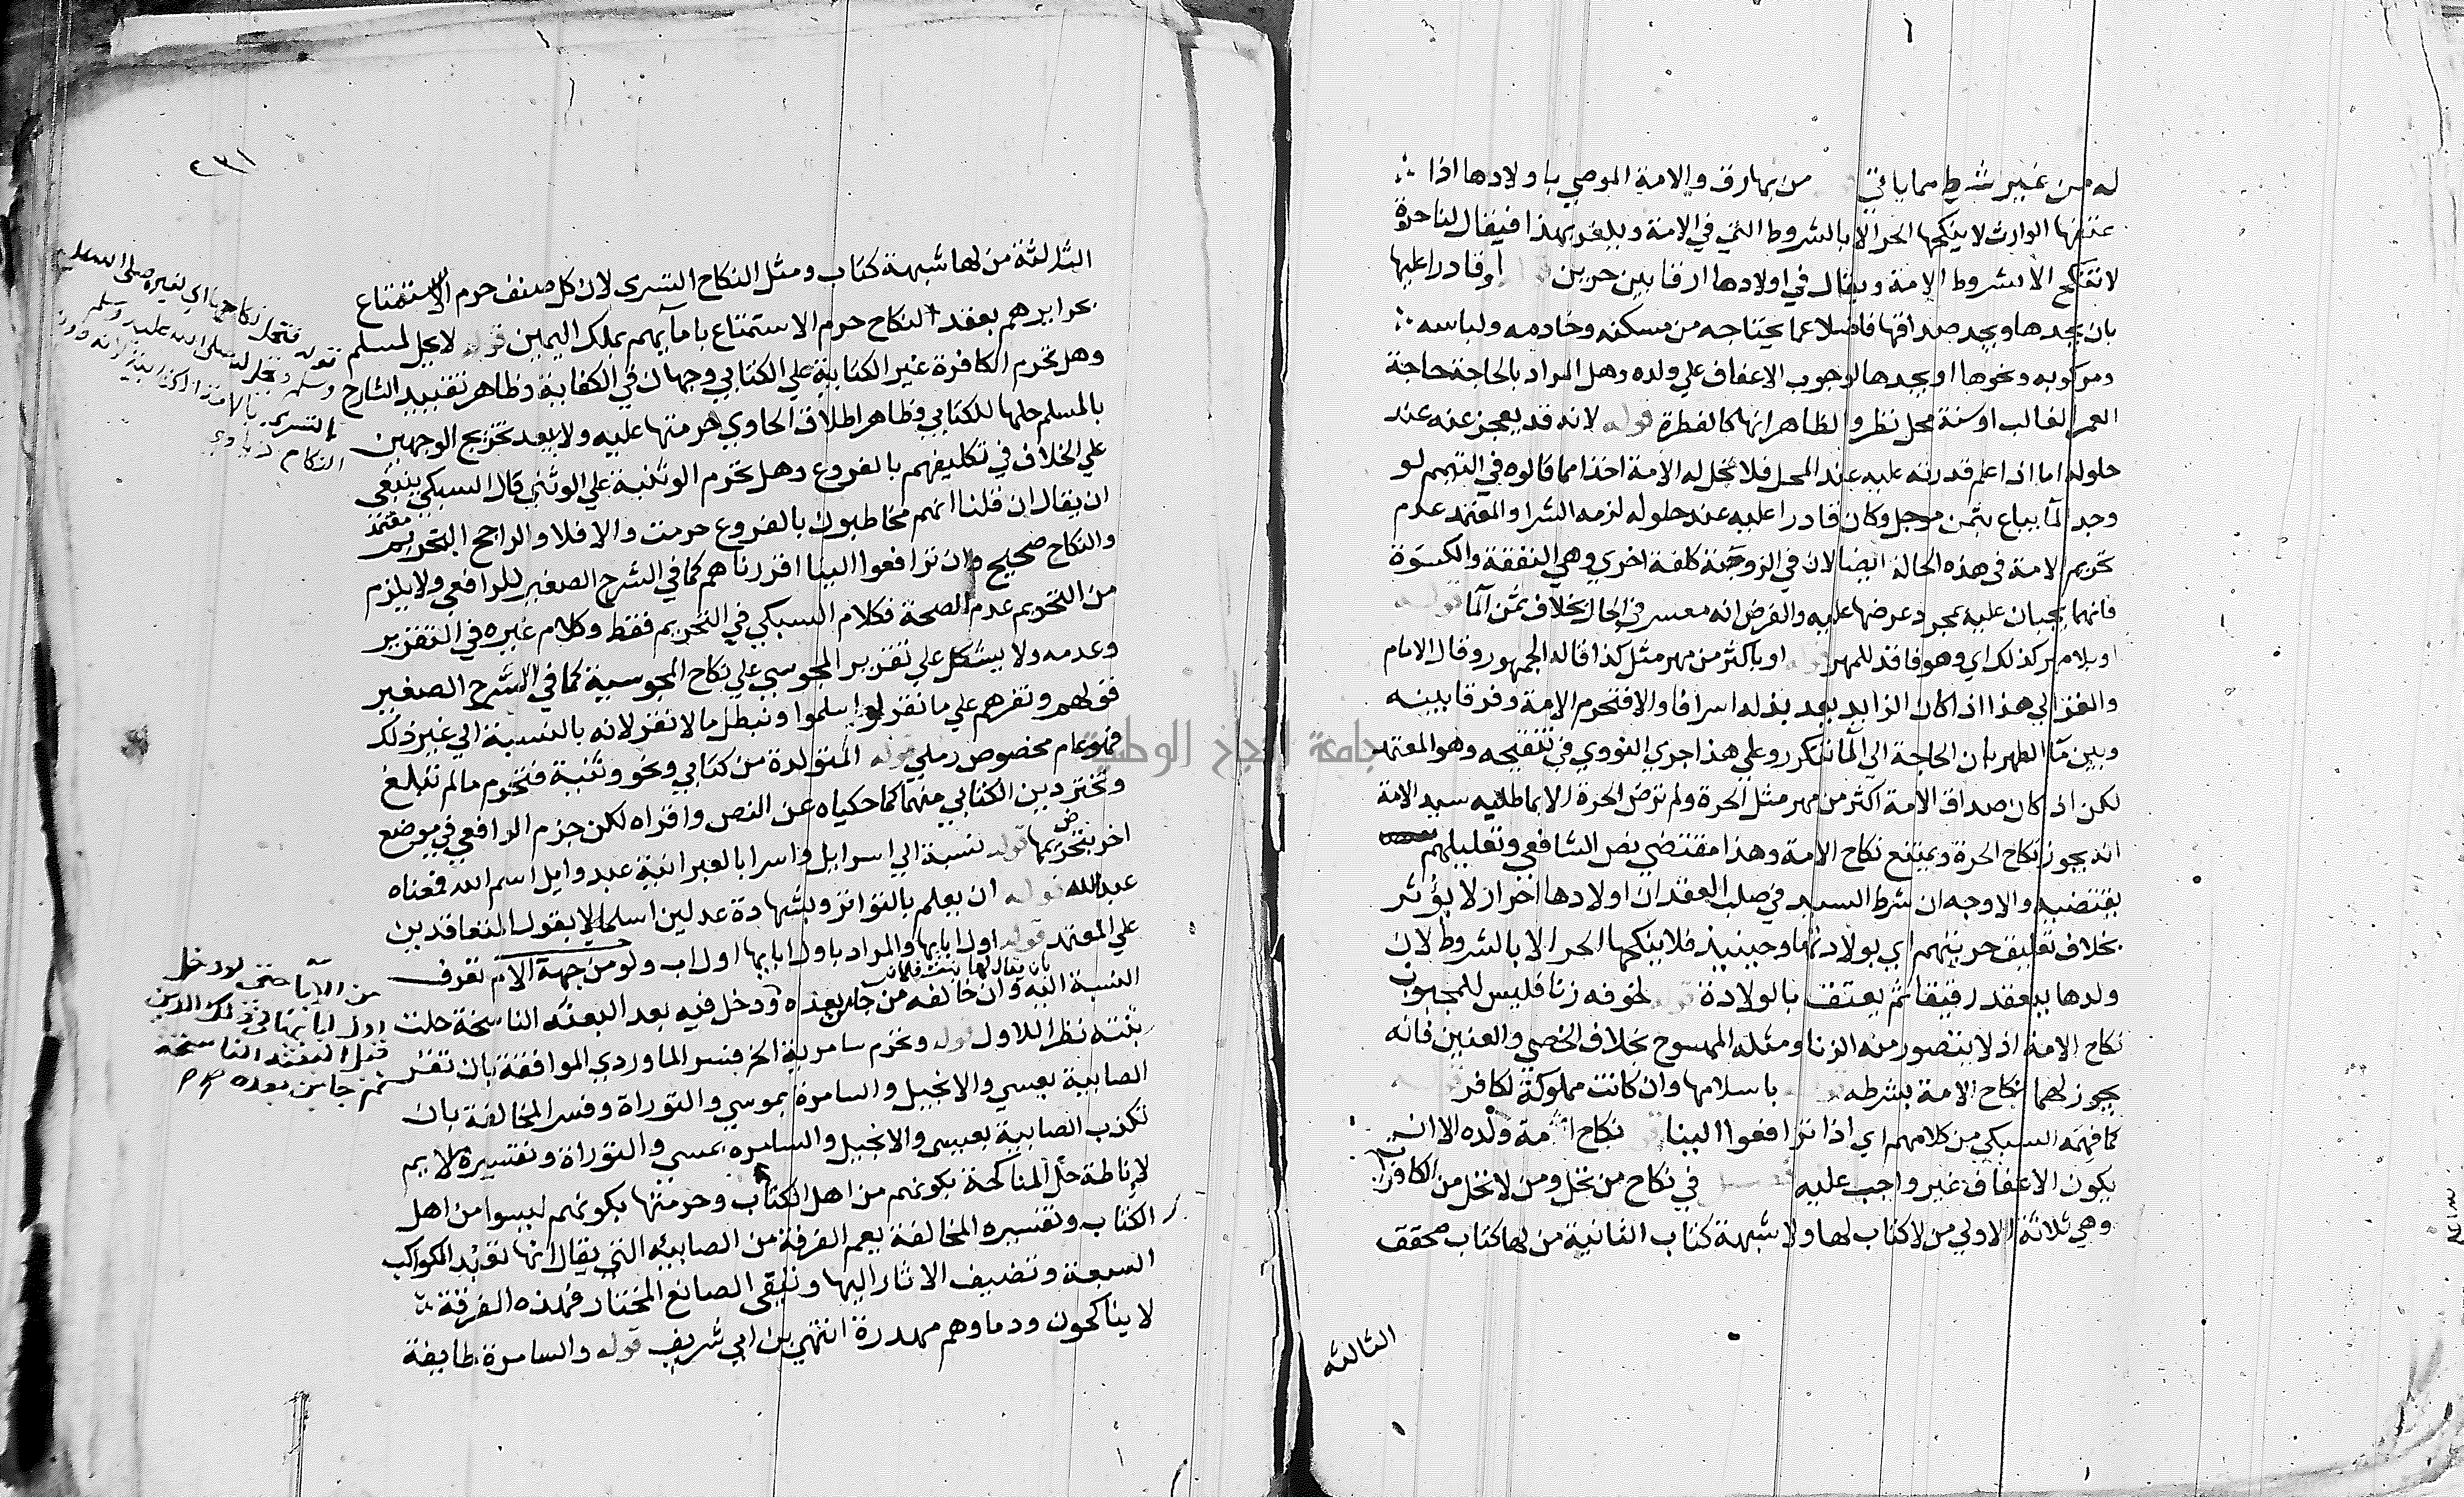 له من غير شرط مما ياتي من بهارق والامة الموصي باولادها اذا
عتقها الوارث لا ينكحها الحر الا بالشروط التي في الامة ويلغز بهذا فيقال لنا حرة
لا تنكح الا بشروط الامة ويقال في اولادها ارقا بين حرين او قادرا عليها
بان يجدها ويجد صداقها فاضلا عما يحتاجه من مسكنه وخادمه ولباسه
ومركوبه ونحوها او يجدها لوجوب الاعفاف علي ولده وهل المراد بالحاجة حاجة
العمر الغالب او سنة محل نظر والظاهر انها كالفطرة قوله لانه قد يعجز عنه عند
حلوله اما اذا علم قدرته عليه عند المحل فلا تحل له الامة اخذا مما قالوه في التيمم لو
وجد الما يباع بثمن موجل وكان قادرا عليه عند حلوله لزمه الشرا والمعتمد عدم
تحريم الامة في هذه الحالة ايضا لان في الزوجة كلفة اخري وهي النفقة والكسوة
فانهما يجبان عليه بمجرد عرضها عليه والفرض انه معسر في الحال بخلاف ثمن الما قوله
او بلا مهر كذلك اي وهو فاقد للمهر قوله او باكثر من مهر مثل كذا قاله الجمهور وقال الامام
والغزالي هذا اذا كان الزايد يعد بذله اسرافا والا فتحرم الامة وفرقا بينه
وبين ما الطهر بان الحاجة الي الما تتكرر وعلي هذا جري النووي في تنقيحه وهو المعتمد
لكن اذا كان صداق الامة اكثر من مهر مثل الحرة ولم ترض الحرة الا بما طلبه سيد الامة
انه يجوز نكاح الحرة ويمتنع نكاح الامة وهذا مقتضي نص الشافعي وتعليلهم
يقتضيه والاوجه ان شرط السيد في صلب العقد ان اولادها احرار لا يؤثر
بخلاف تعليق حريتهم اي بولادتها وحينيذ فلا ينكحها الحر الا بالشروط لان
ولدها ينعقد رقيقا ثم يعتق بالولادة قوله لخوفه زنا فليس للمجبوب
نكاح الامة اذ لا يتصور منه الزنا ومثله الممسوح بخلاف الخصي والعنين فانه
يجوز لهما نكاح الامة بشرطه باسلامها وان كانت مملوكة لكافر قوله
كما فهمه السبكي من كلامهم اي اذا ترافعوا الينا نكاح امة ولده الا ان
يكون الاعفاف غير واجب عليه في نكاح من تحل ومن لا تحل من الكافرات
وهي ثلاثة الاولي من لا كتاب لها ولا شبهة كتاب الثانية من لها كتاب محقق
الثالثه
جامعة النجاح الوطنية
٢٣١
الثالثة من لها شبهة كتاب ومثل النكاح التسري لان كل صنف حرم الاستمتاع
بحرايرهم بعقد النكاح حرم الاستمتاع بامايهم بملك اليمين قوله لا يحل لمسلم
وهل تحرم الكافرة غير الكتابية علي الكتابي وجهان في الكفاية وظاهر تقييد الشارح
بالمسلم حلها للكتابي وظاهر اطلاق الحاوي حرمتها عليه ولا يبعد تخريج الوجهين
علي الخلاف في تكليفهم بالفروع وهل تحرم الوثنية علي الوثني قال السبكي ينبغي
ان يقال ان قلنا انهم مخاطبون بالفروع حرمت والا فلا والراجح التحريم معتمد
والنكاح صحيح وان ترافعوا الينا اقررناهم كما في الشرح الصغير للرافعي ولا يلزم
من التحريم عدم الصحة فكلام السبكي في التحريم فقط وكلام غيره في التقرير
وعدمه ولا يشكل علي تقرير المجوسي علي نكاح المجوسية كما في الشرح الصغير
قولهم ونقرهم علي ما نقر لو اسلموا ونبطل ما لا نقر لانه بالنسبة الي غير ذلك
فهو عام مخصوص رملي قوله المتولدة من كتابي ونحو وثنية فتحرم ما لم تبلغ
وتختر دين الكتابي منهما كما حكياه عن النص واقراه لكن جزم الرافعي في موضع
اخر بتحريمها قوله نسبة الي اسرايل واسرا بالعبرانية عبد وايل اسم الله فمعناه
عبد الله قوله ان يعلم بالتواتر وبشهادة عدلين اسلما لا بقول المتعاقدين
علي المعتمد قوله اول ابايها والمراد باول ابايها اول اب ولو من جهة الام تعرف
بان يقال لها بنت فلان
النسبة اليه وان خالفه من جا بعده ودخل فيه بعد البعثه الناسخة حلت
بثته نظرا للاول قوله وتحرم سامرية الخ فسر الماوردي الموافقة بان تقر
الصابية بعيسي والانجيل والسامرة بموسي والتوراة وفسر المخالفة بان
تكذب الصابية بعيسي والانجيل والسامره بموسي والتوراة وتفسيره لا يم
لاناطة حل المناكحة بكونهم من اهل الكتاب وحرمتها بكونهم ليسوا من اهل
الكتاب وتفسيره المخالفة يعم الفرقة من الصابية التي يقال انها تعبد الكواكب
السبعة وتضيف الاثار اليها وتنفي الصانع المختار فهذه الفرقة
لا يناكحون ودماوهم مهدرة انتهي بن ابي شريف قوله والسامرة طايفة
قوله فتحل نكاحها اي لغيره صلى الله عليه
وسلم وتحل له صلى الله عليه وسلم
التسري بالامة الكتابية دون
النكاح
من الابا حتي لو دخل
اول ابايها في ذلك الدين
قبل البعثه الناسخة
ثم جا من بعده